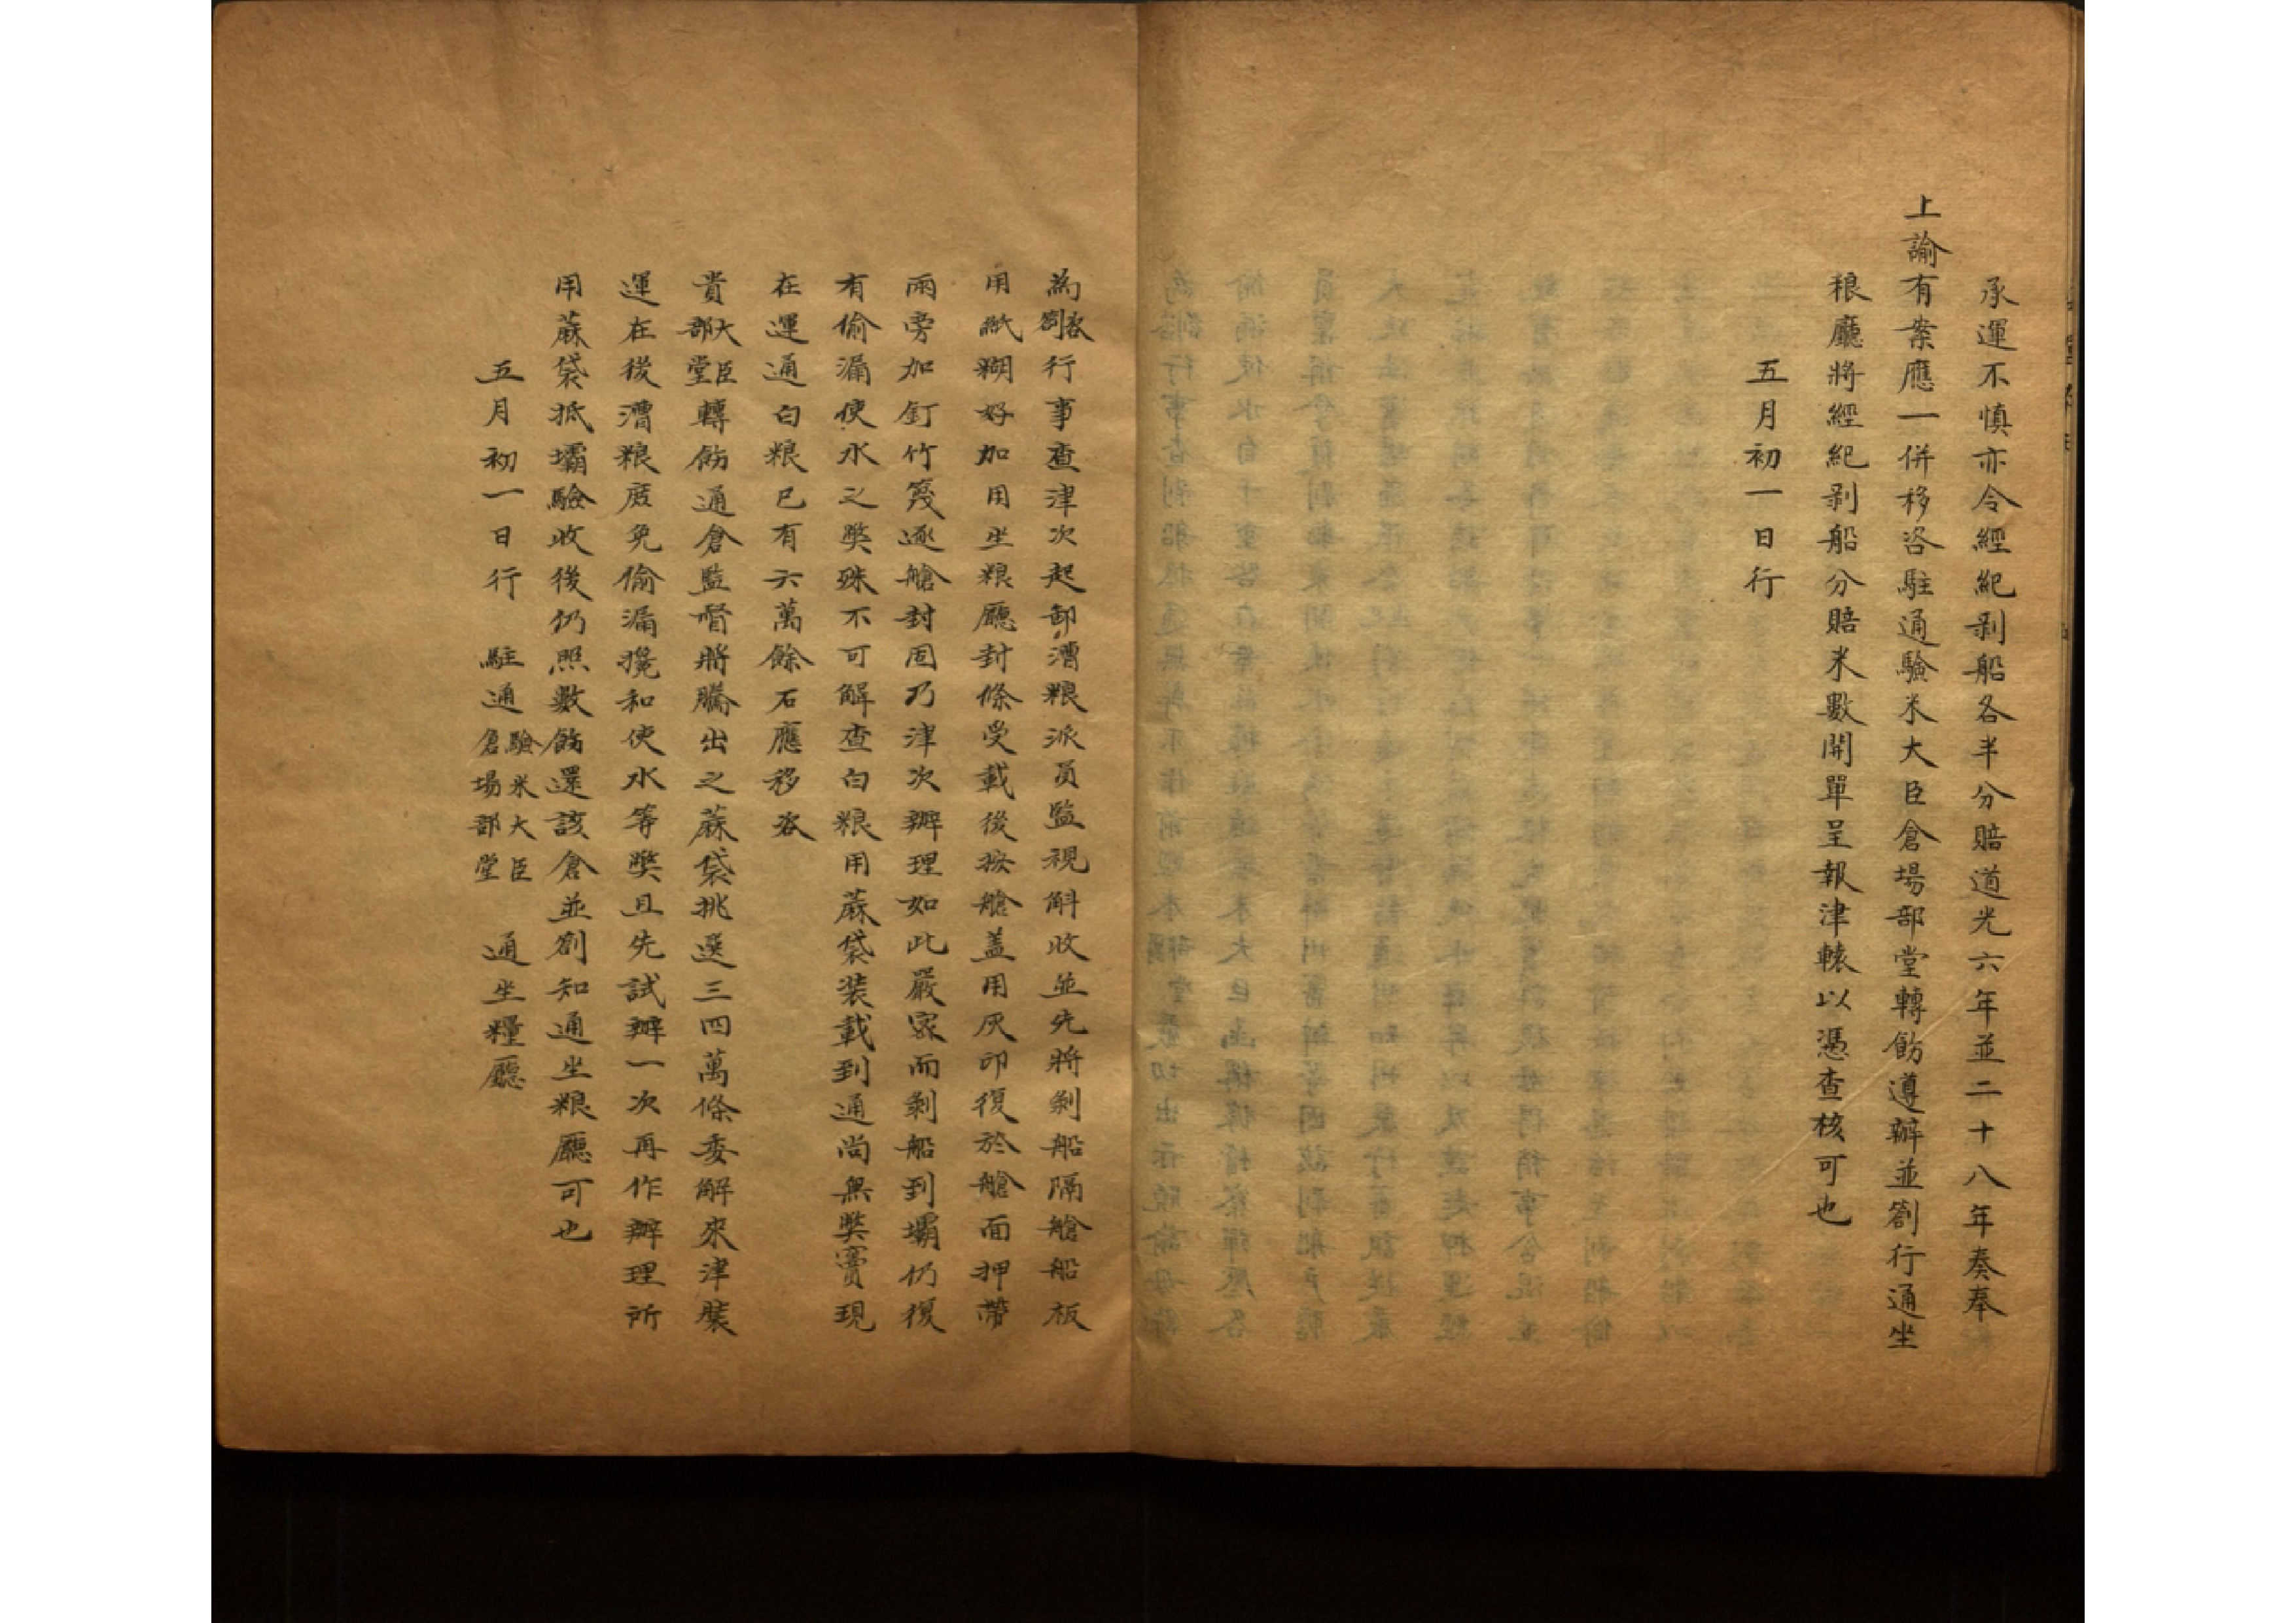 承運不慎亦令經紀剥船各半分賠道光六年並二十八年奏奉
上諭有案應一併移咨駐通驗米大臣倉場部堂轉飭遵辦並劄行通坐
粮廳將經紀剥船分賠米數開單呈報津轅以憑查核可也
五月初一日行
為咨劄行事查津次起卸漕粮派員監視斛收並先將剥船隔艙船板
用紙糊好加用坐粮廳封條受載後按艙蓋用灰印復於艙面押帶
兩旁加釘竹篾逐艙封固乃津次辦理如此嚴密而剥船到壩仍復
有偷漏使水之獘殊不可解查白粮用蔴袋装載到通尚無獘竇現
在運通白粮已有六萬餘石應移咨
貴大臣部堂轉飭通倉監督將騰出之蔴袋挑選三四萬條委解來津裝
運在後漕粮庶免偷漏攙和使水等獘且先試辦一次再作辦理所
用蔴袋抵壩驗收後仍照數飭還該倉並劄知通坐粮廳可也
五月初一日行 駐通驗米大臣倉場部堂 通坐糧廳